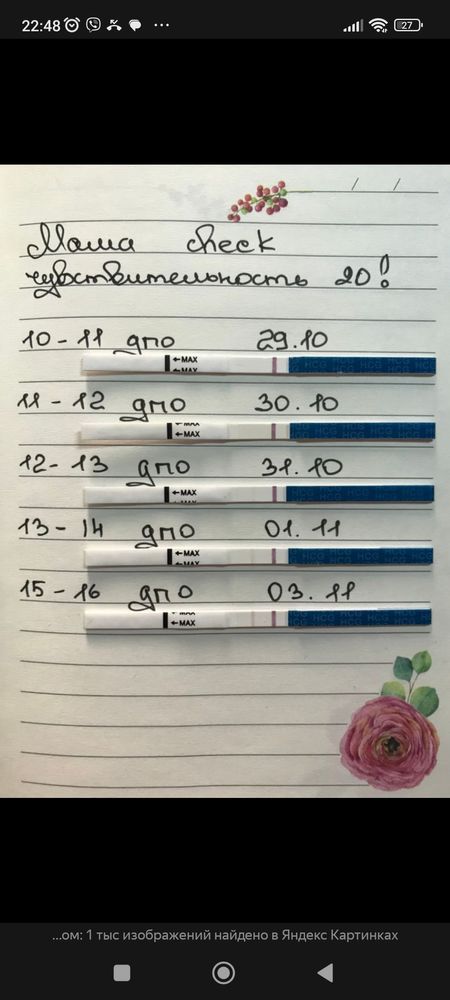 22:48 27
Мама check
чувствительность 20!
10-11 дпо 29.10
←MAX
←MAX
11-12 дпо 30.10
←MAX
←MAX
12-13 дпо 31.10
←MAX
13-14 дпо 01.11
←MAX
←MAX
15-16 дпо 03.11
←MAX
←MAX
...ом: 1 тыс изображений найдено в Яндекс Картинках